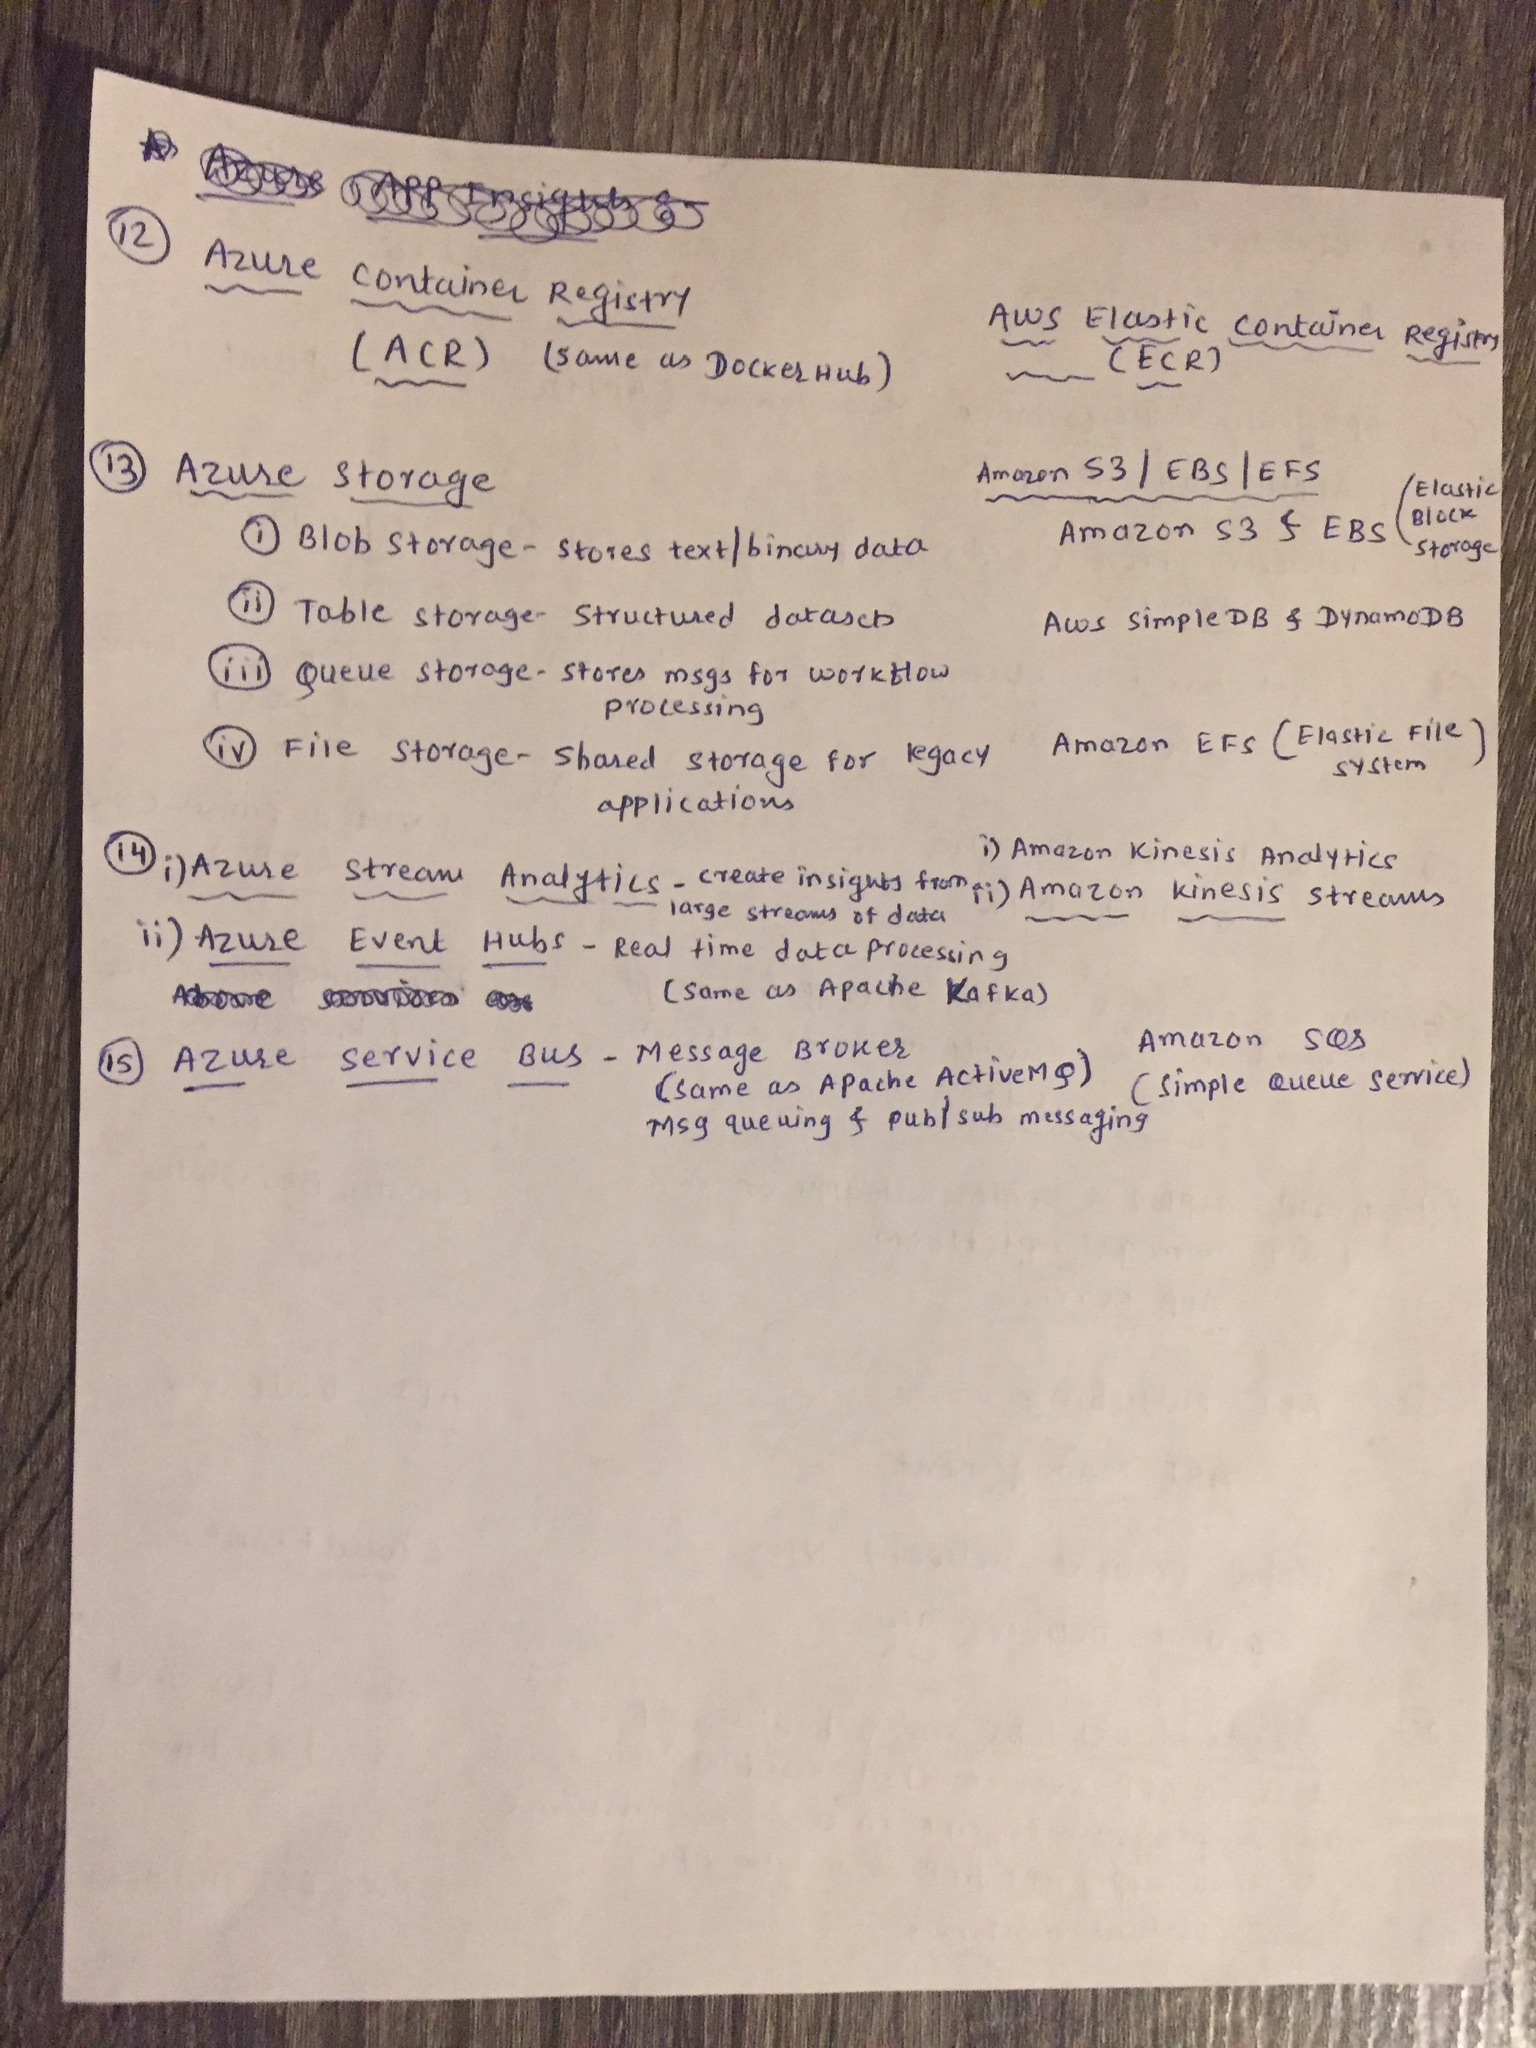 Azure App Insights
12 Azure Container Registry
AWS Elastic Container Registry
(ACR) (same as DockerHub)
(ECR)
13 Azure Storage
Amazon S3 | EBS | EFS
i Blob Storage - stores text/binary data
Amazon S3 & EBS (Elastic
Block
Storage
ii Table storage - Structured datasets
Aws SimpleDB & DynamoDB
iii Queue storage - stores msgs for workflow
processing
iv File storage - Shared storage for legacy
applications
Amazon EFS (Elastic File
System)
14 i) Azure Stream Analytics - create insights from
large streams of data
i) Amazon Kinesis Analytics
ii) Amazon Kinesis Streams
ii) Azure Event Hubs - Real time data processing
(Same as Apache Kafka)
15 Azure Service Bus - Message Broker
(same as Apache ActiveMQ)
Msg queuing & pub/sub messaging
Amazon SQS
(Simple Queue Service)